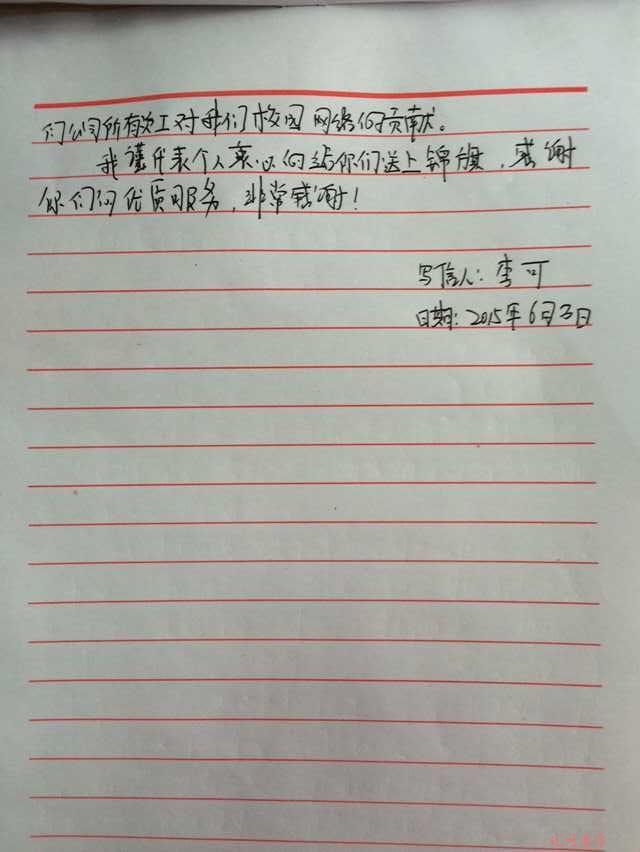 们公司所有员工对我们校园网络的贡献。
我谨代表个人衷心的给你们送上锦旗，感谢
你们的优质服务，非常感谢！
写信人：李可
日期：2015年6月3日